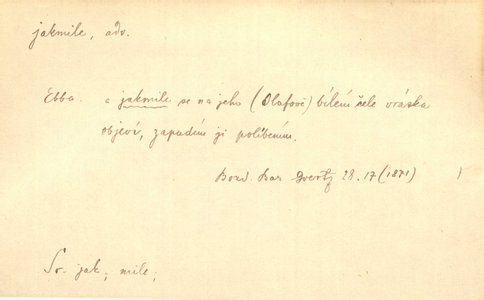 jakmile, adv.
Ebba. a jakmile se na jeho (Olafově) bílém čele vráska
objeví, zapudím ji políbením.
Bozd. Bar 28. 17 (1871)
Sr. jak, mile,